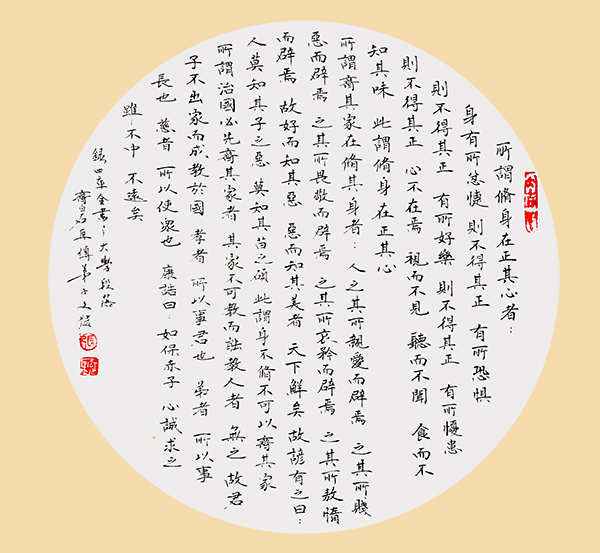 所謂脩身在正其心者：
身有所忿懥 則不得其正 有所恐惧
則不得其正 有所好樂 則不得其正 有所懮患
則不得其正 心不在焉 視而不見 聽而不聞 食而不
知其味 此謂脩身在正其心
所謂齊其家在脩其身者：人之其所親愛而辟焉 之其所賤
惡而辟焉 之其所畏敬而辟焉 之其所哀矜而辟焉 之其所敖惰
而辟焉 故好而知其惡 惡而知其美者 天下鮮矣 故諺有之曰：
人莫知其子之惡 莫知其苗之碩 此謂身不脩不可以齊其家
所謂治國必先齊其家者 其家不可教而能教人者 無之 故君
子不出家而成教於國 孝者 所以事君也 弟者 所以事
長也 慈者 所以使衆也 康誥曰：如保赤子 心誠求之
雖不中 不遠矣
錄四库全書之大學段落
弟子文